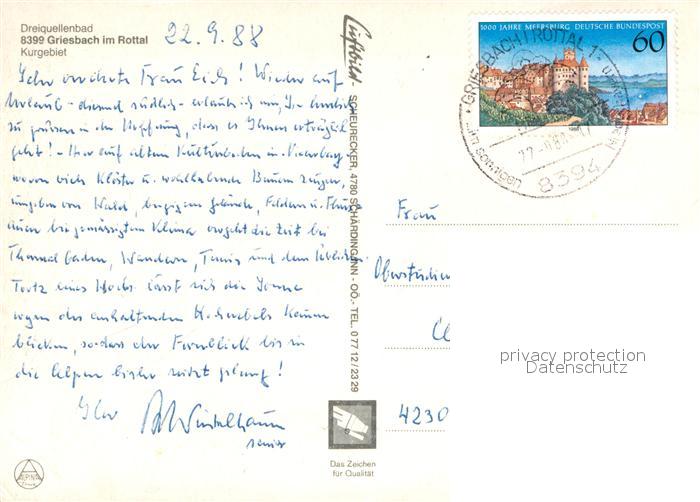 Dreiquellenbad
8399 Griesbach im Rottal
Kurgebiet
22.9.88
Sehr verehrte Frau Eich! Wieder auf
Urlaub - diesmal südlich - erlaube ich mir, Sie herzlich
zu grüssen in der Hoffnung, dass es Ihnen erträglich
geht! - Hier auf altem Kulturboden in Niederbay
wovon viele Klöster u. wohlhabende Bauern zeugen,
umgeben von Wald, Feldern u. Fluss
auen bei gemässigtem Klima vergeht die Zeit bei
Thermalbaden, Wandern, Tennis und dem
Trotz eines Hochs lässt sich die Sonne
wegen des anhaltenden Hochnebels kaum
blicken, sodass der Fernblick bis in
die Alpen bisher nicht gelang!
Ihr
senior
Luftbild - SCHEURECKER, 4780 SCHÄRDING/INN - OÖ. - TEL. 0 77 12 / 23 29
1000 JAHRE MEERSBURG DEUTSCHE BUNDESPOST
60
GRIESBACH I ROTTAL 1
8394
Frau
Oberstudien
4230
privacy protection
Datenschutz
Das Zeichen
für Qualität
ALPINA